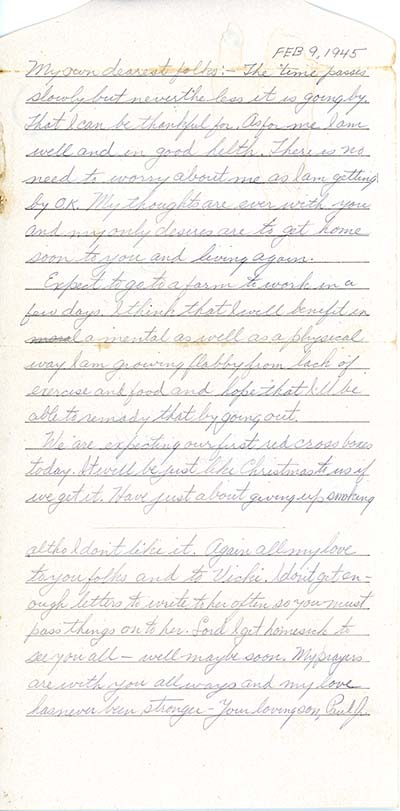 FEB 9, 1945
My own dearest folks:- The time passes
slowly but never the less it is going by.
That I can be thankful for. As for me I am
well and in good helth. There is no
need to worry about me as I am getting
by O.K. My thoughts are ever with you
and my only desires are to get home
soon to you and living again.
Expect to go to a farm to work in a
few days. I think that I will benefit in
a mental as well as a physical
way I am growing flabby from lack of
exercise and food and hope that I'll be
able to remady that by going out.
We are expecting our first red cross boxes
today. It will be just like Christmas to us if
we get it. Have just about giving up smoking
altho I don't like it. Again all my love
to you folks and to Vicki. I don't get en-
ough letters to write to her often so you must
pass things on to her. Lord I get homesick to
see you all - well maybe soon. My prayers
are with you all ways and my love
has never been stronger - Your loving son, Paul J.